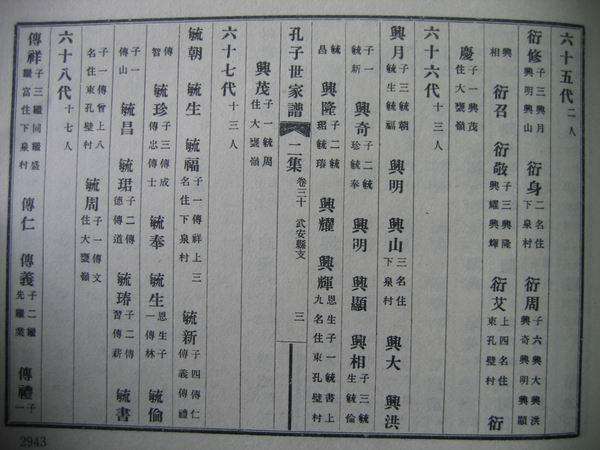 六十五代 二人
衍修 子三興月興明興山 衍身 二名住下泉村 衍周 子六興大興洪興奇興明興顯
興相 衍召 衍敬 子三興隆興耀興輝 衍艾 上四名住東孔壁村 衍
慶 子一興茂住大甕嶺
六十六代 十三人
興月 子三毓朝毓生毓福 興明 興山 三名住下泉村 興大 興洪
子一毓新 興奇 子二毓珍毓奉 興明 興顯 興相 子三毓生毓倫
毓昌 興隆 子二毓珺毓 興耀 興輝 恩生子一毓書上九名住東孔壁村
孔子世家譜 二集 卷三十 武安縣支 三
興茂 子一毓周住大甕嶺
六十七代 十三人
毓朝 毓生 毓福 子一傳祥上三名住下泉村 毓新 子四傳仁傳義傳禮
傳智 毓珍 子三傳成傳忠傳士 毓奉 毓生 恩生子一傳林 毓倫
子一傳山 毓昌 毓珺 子二傳德傳道 毓 子二傳習傳薪 毓書
子一傳曾上八名住東孔壁村 毓周 子一傳文住大甕嶺
六十八代 十七人
傳祥 子三繼同繼盛繼富住下泉村 傳仁 傳義 子二繼先繼業 傳禮 子一
2943